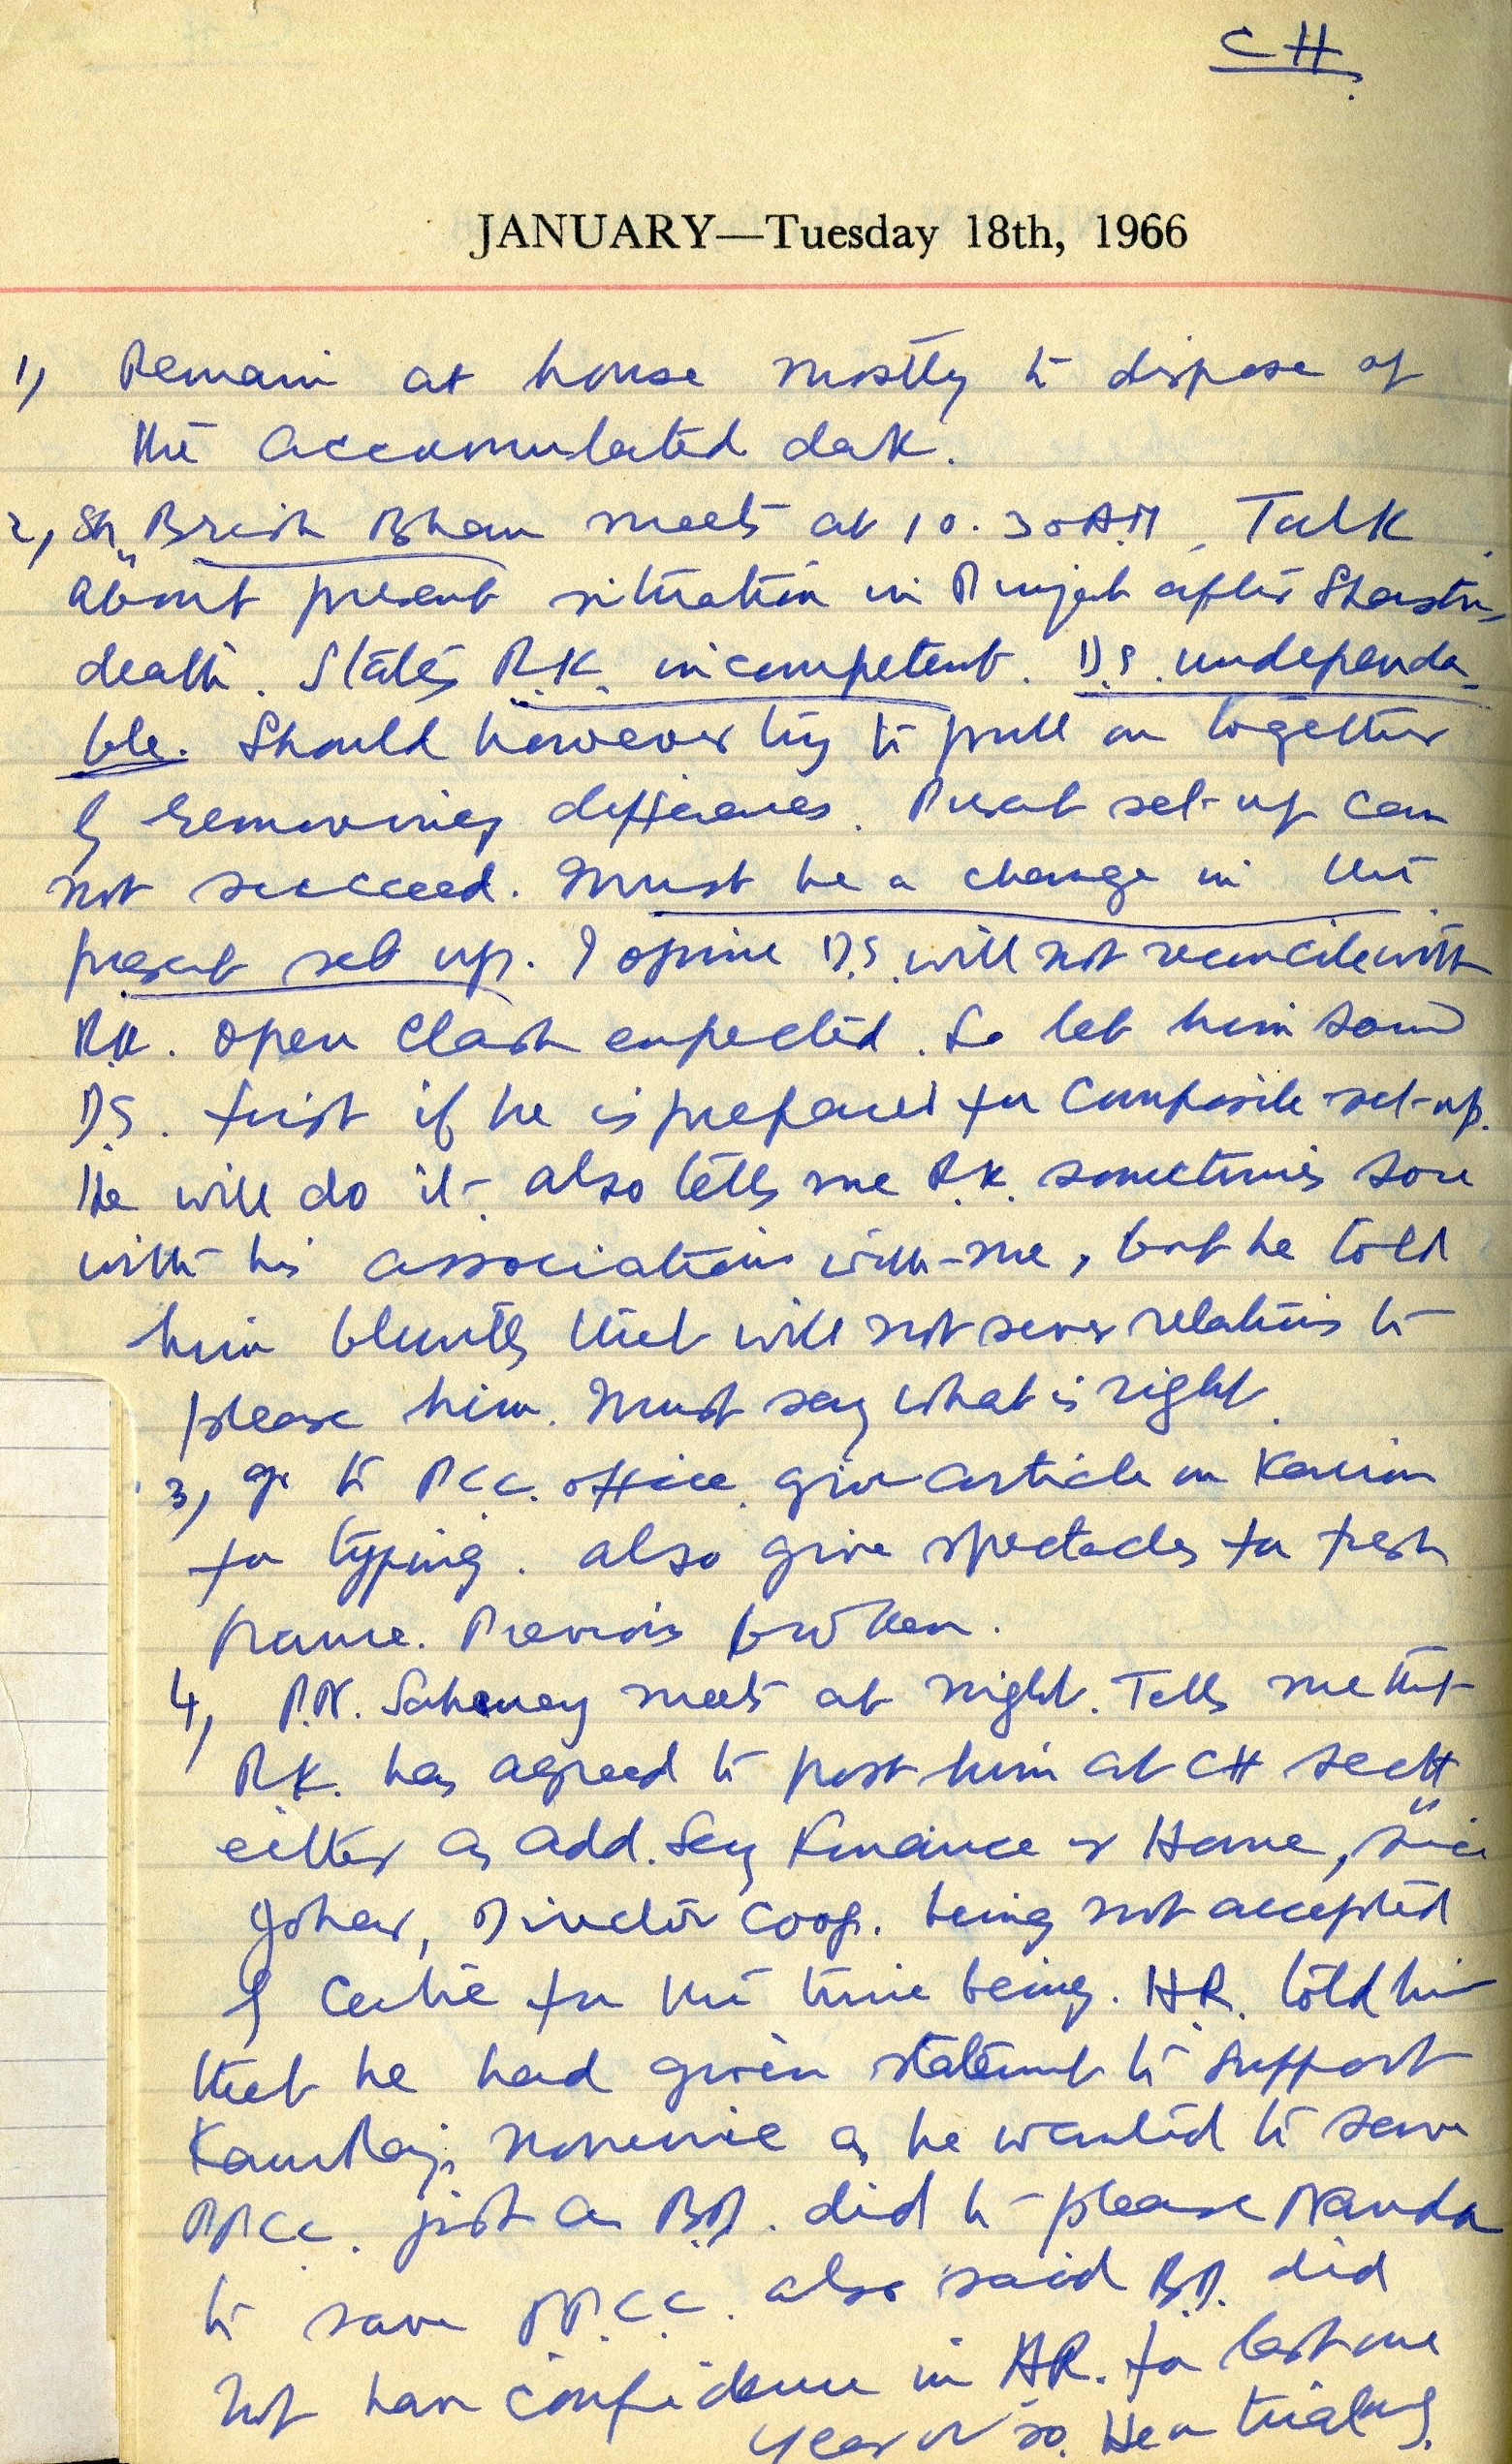 CH.
JANUARY—Tuesday 18th, 1966
1) Remain at house mostly to dispose of
the accumulated dak.
2) Sh. Brish Bhan meets at 10.30 A.M. Talk
about present situation in Punjab after Shastri's
death. States R.K. incompetent. D.S. undependa-
ble. Should however try to pull on together
by removing differences. Present set-up can
not succeed. Must be a change in the
present set up. I opine D.S. will not reconcile with
R.K. open clash expected. So let him sound
D.S. first if he is prepared for composite set-up.
He will do it. also tells me R.K. sometimes sore
with his associations with me, but he told
him bluntly that will not sever relations to
please him. Must say what is right.
3) go to PCC. office. give article on
for typing. also give spectacles for fresh
frame. Previous broken.
4) P.N. Sahney meets at night. Tells me that
R.K. has agreed to post him at CH sectt
either as add. Secy Finance or Home, since
Johar, Director Coop. being not accepted
by Centre for the time being. H.R. told him
that he had given statement to support
Kamraj's nominee as he wanted to save
PPCC. just as B.D. did to please Nanda
to save PPCC. also said B.D. did
not have confidence in HR. for last one
year or so. He on